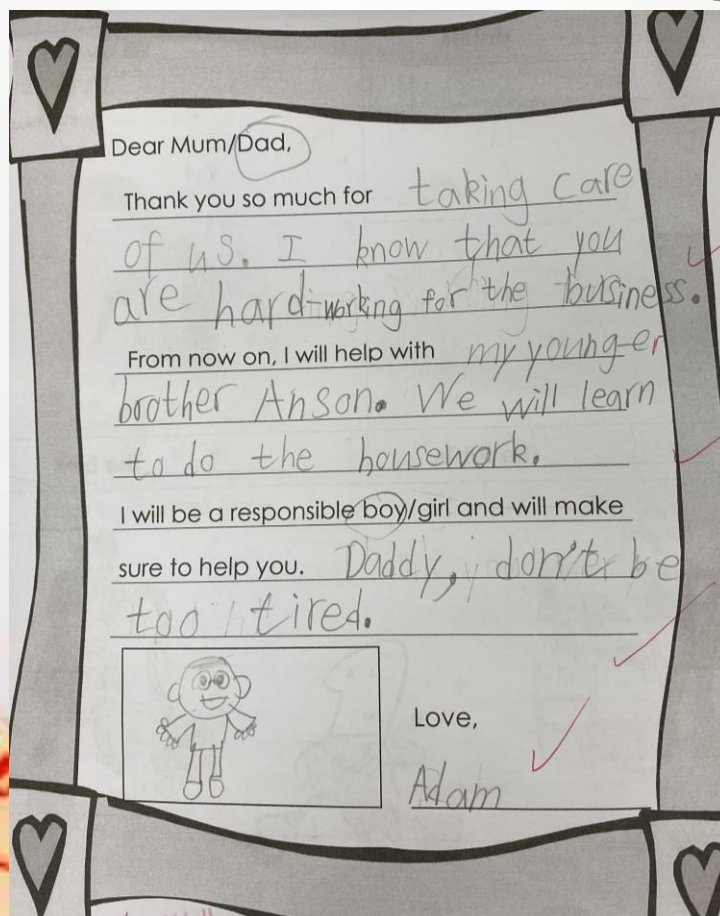 Dear Mum/Dad,
Thank you so much for taking care
of us. I know that you
are hard-working for the business.
From now on, I will help with my younger
brother Anson. We will learn
to do the housework.
I will be a responsible boy/girl and will make
sure to help you. Daddy, don't be
too tired.
Love,
Adam